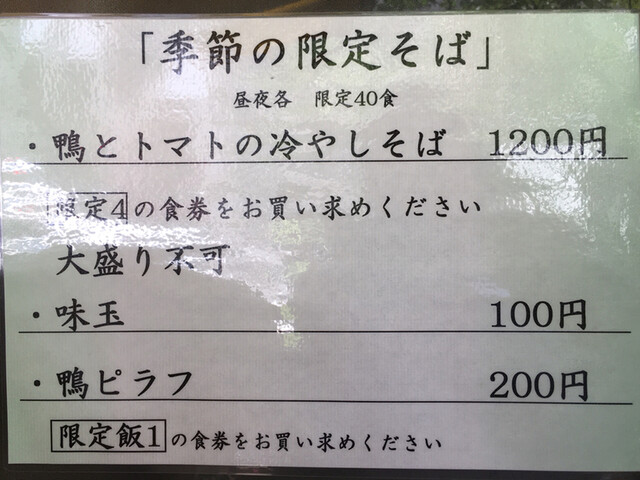 「季節の限定そば」
昼夜各 限定40食
・鴨とトマトの冷やしそば 1200円
限定4の食券をお買い求めください
大盛り不可
・味玉 100円
・鴨ピラフ 200円
限定飯1の食券をお買い求めください